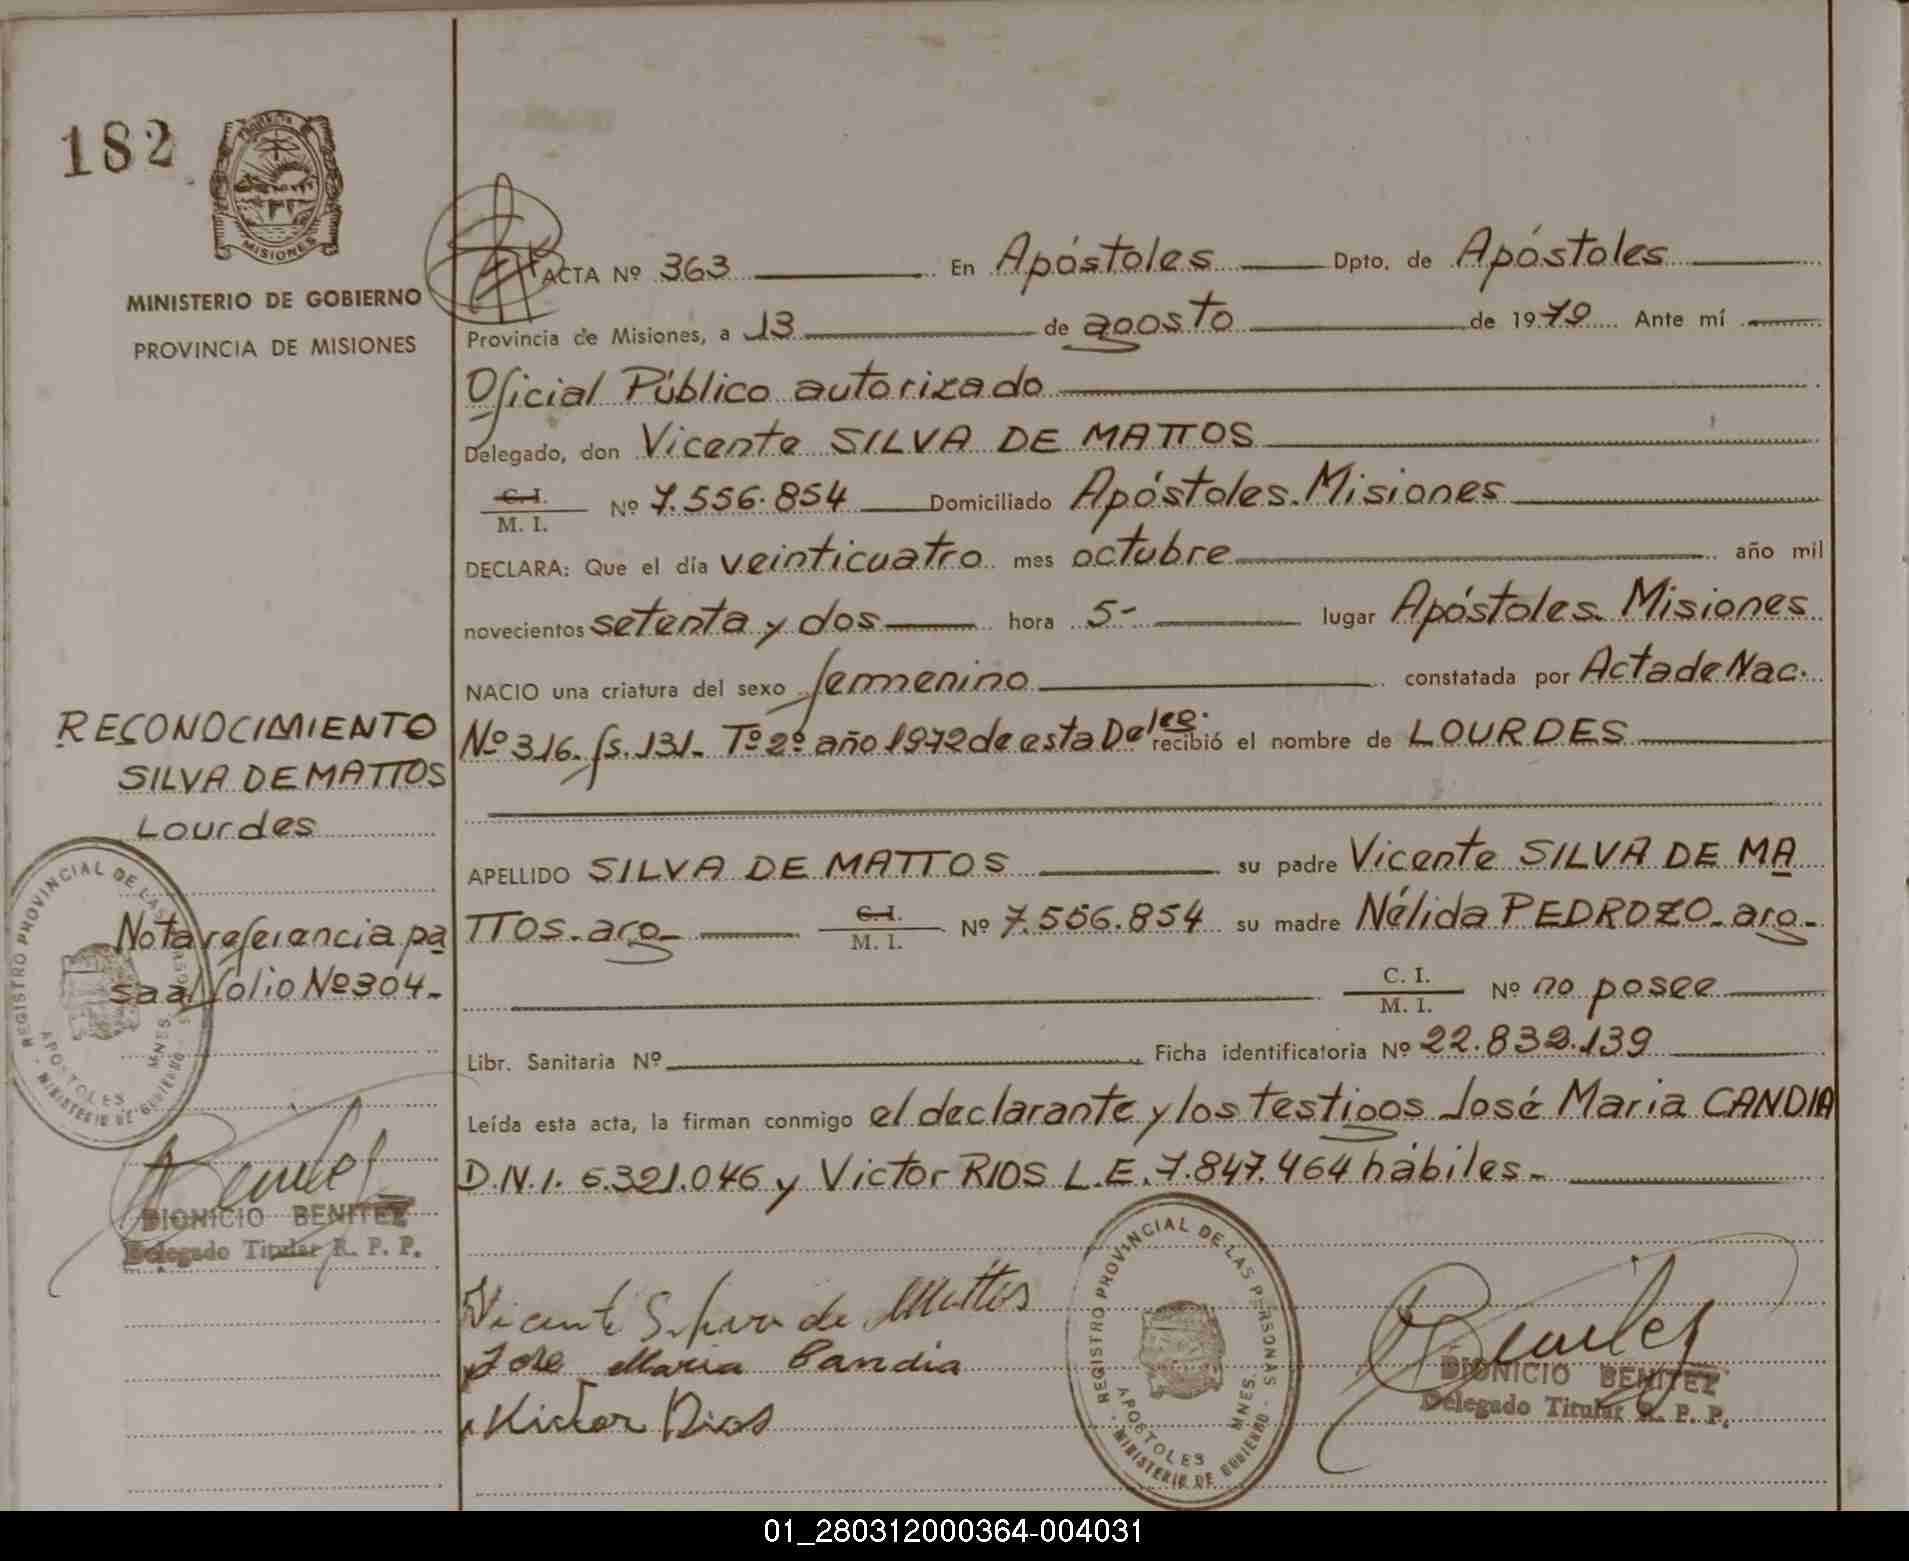 182
MISIONES
MINISTERIO DE GOBIERNO
PROVINCIA DE MISIONES
RECONOCIMIENTO
SILVA DE MATTOS
Lourdes
Nota referencia pa
sa al folio Nº 304.-
REGISTRO PROVINCIAL DE LAS PERSONAS
APOSTOLES MNES.
- MINISTERIO DE GOBIERNO -
DIONICIO BENITEZ
Delegado Titular R. P. P.
ACTA Nº 363 En Apóstoles Dpto. de Apóstoles
Provincia de Misiones, a 13 de agosto de 1979 Ante mí
Oficial Público autorizado
Delegado, don Vicente SILVA DE MATTOS
C. I.
M. I. Nº 7.556.854 Domiciliado Apóstoles. Misiones
DECLARA: Que el día veinticuatro mes octubre año mil
novecientos setenta y dos hora 5- lugar Apóstoles. Misiones
NACIO una criatura del sexo femenino constatada por Acta de Nac.
Nº 316. fs. 131. Tº 2º año 1972 de esta Deleg. recibió el nombre de LOURDES
APELLIDO SILVA DE MATTOS su padre Vicente SILVA DE MA
TTOS. arg.- C. I. M. I. Nº 7.556.854 su madre Nélida PEDROZO. arg.-
C. I.
M. I. Nº no posee
Libr. Sanitaria Nº Ficha identificatoria Nº 22.832.139
Leída esta acta, la firman conmigo el declarante y los testigos José Maria CANDIA
D.N.I. 5.321.046 y Victor RIOS L.E. 7.847.464 hábiles.-
Vicente Silva de Mattos
Jose Maria Candia
Victor Rios
REGISTRO PROVINCIAL DE LAS PERSONAS
APOSTOLES MNES.
- MINISTERIO DE GOBIERNO -
DIONICIO BENITEZ
Delegado Titular R. P. P.
01_280312000364-004031